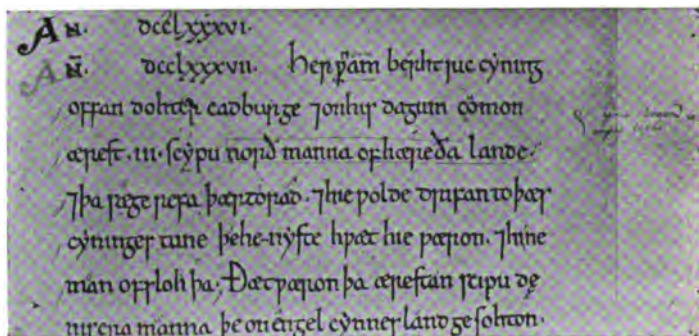 AN. dcclxxxvi.
AN̄. dcclxxxvii. Her nam berhtric cyning
offan dohter eadburge ⁊ on his dagum cōmon
ærest .iii. scypu norð manna of hæreða lande.
⁊ þa se ge refa þær to rad. ⁊ hie ƿolde drifan to þær
cyninges tune þe he nyste hƿæt hie ƿæron. ⁊ hine
man ofsloh þa. Ðæt ƿæron þa ærestan scipu de
niscra manna þe on engel cynnes land ge sohton.